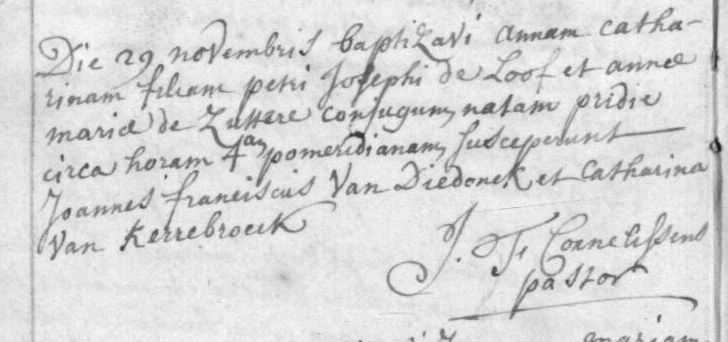 Die 29 novembris baptizavi annam catha-
rinam filiam petri Josephi de Loof et annæ
mariæ de Zuttere conjugum, natam pridie
circa horam 4am pomeridianam, susceperunt
Joannes franciscus Van Diedonck et Catharina
Van Kerrebroeck
J. F. Cornelissens
pastor
mariam